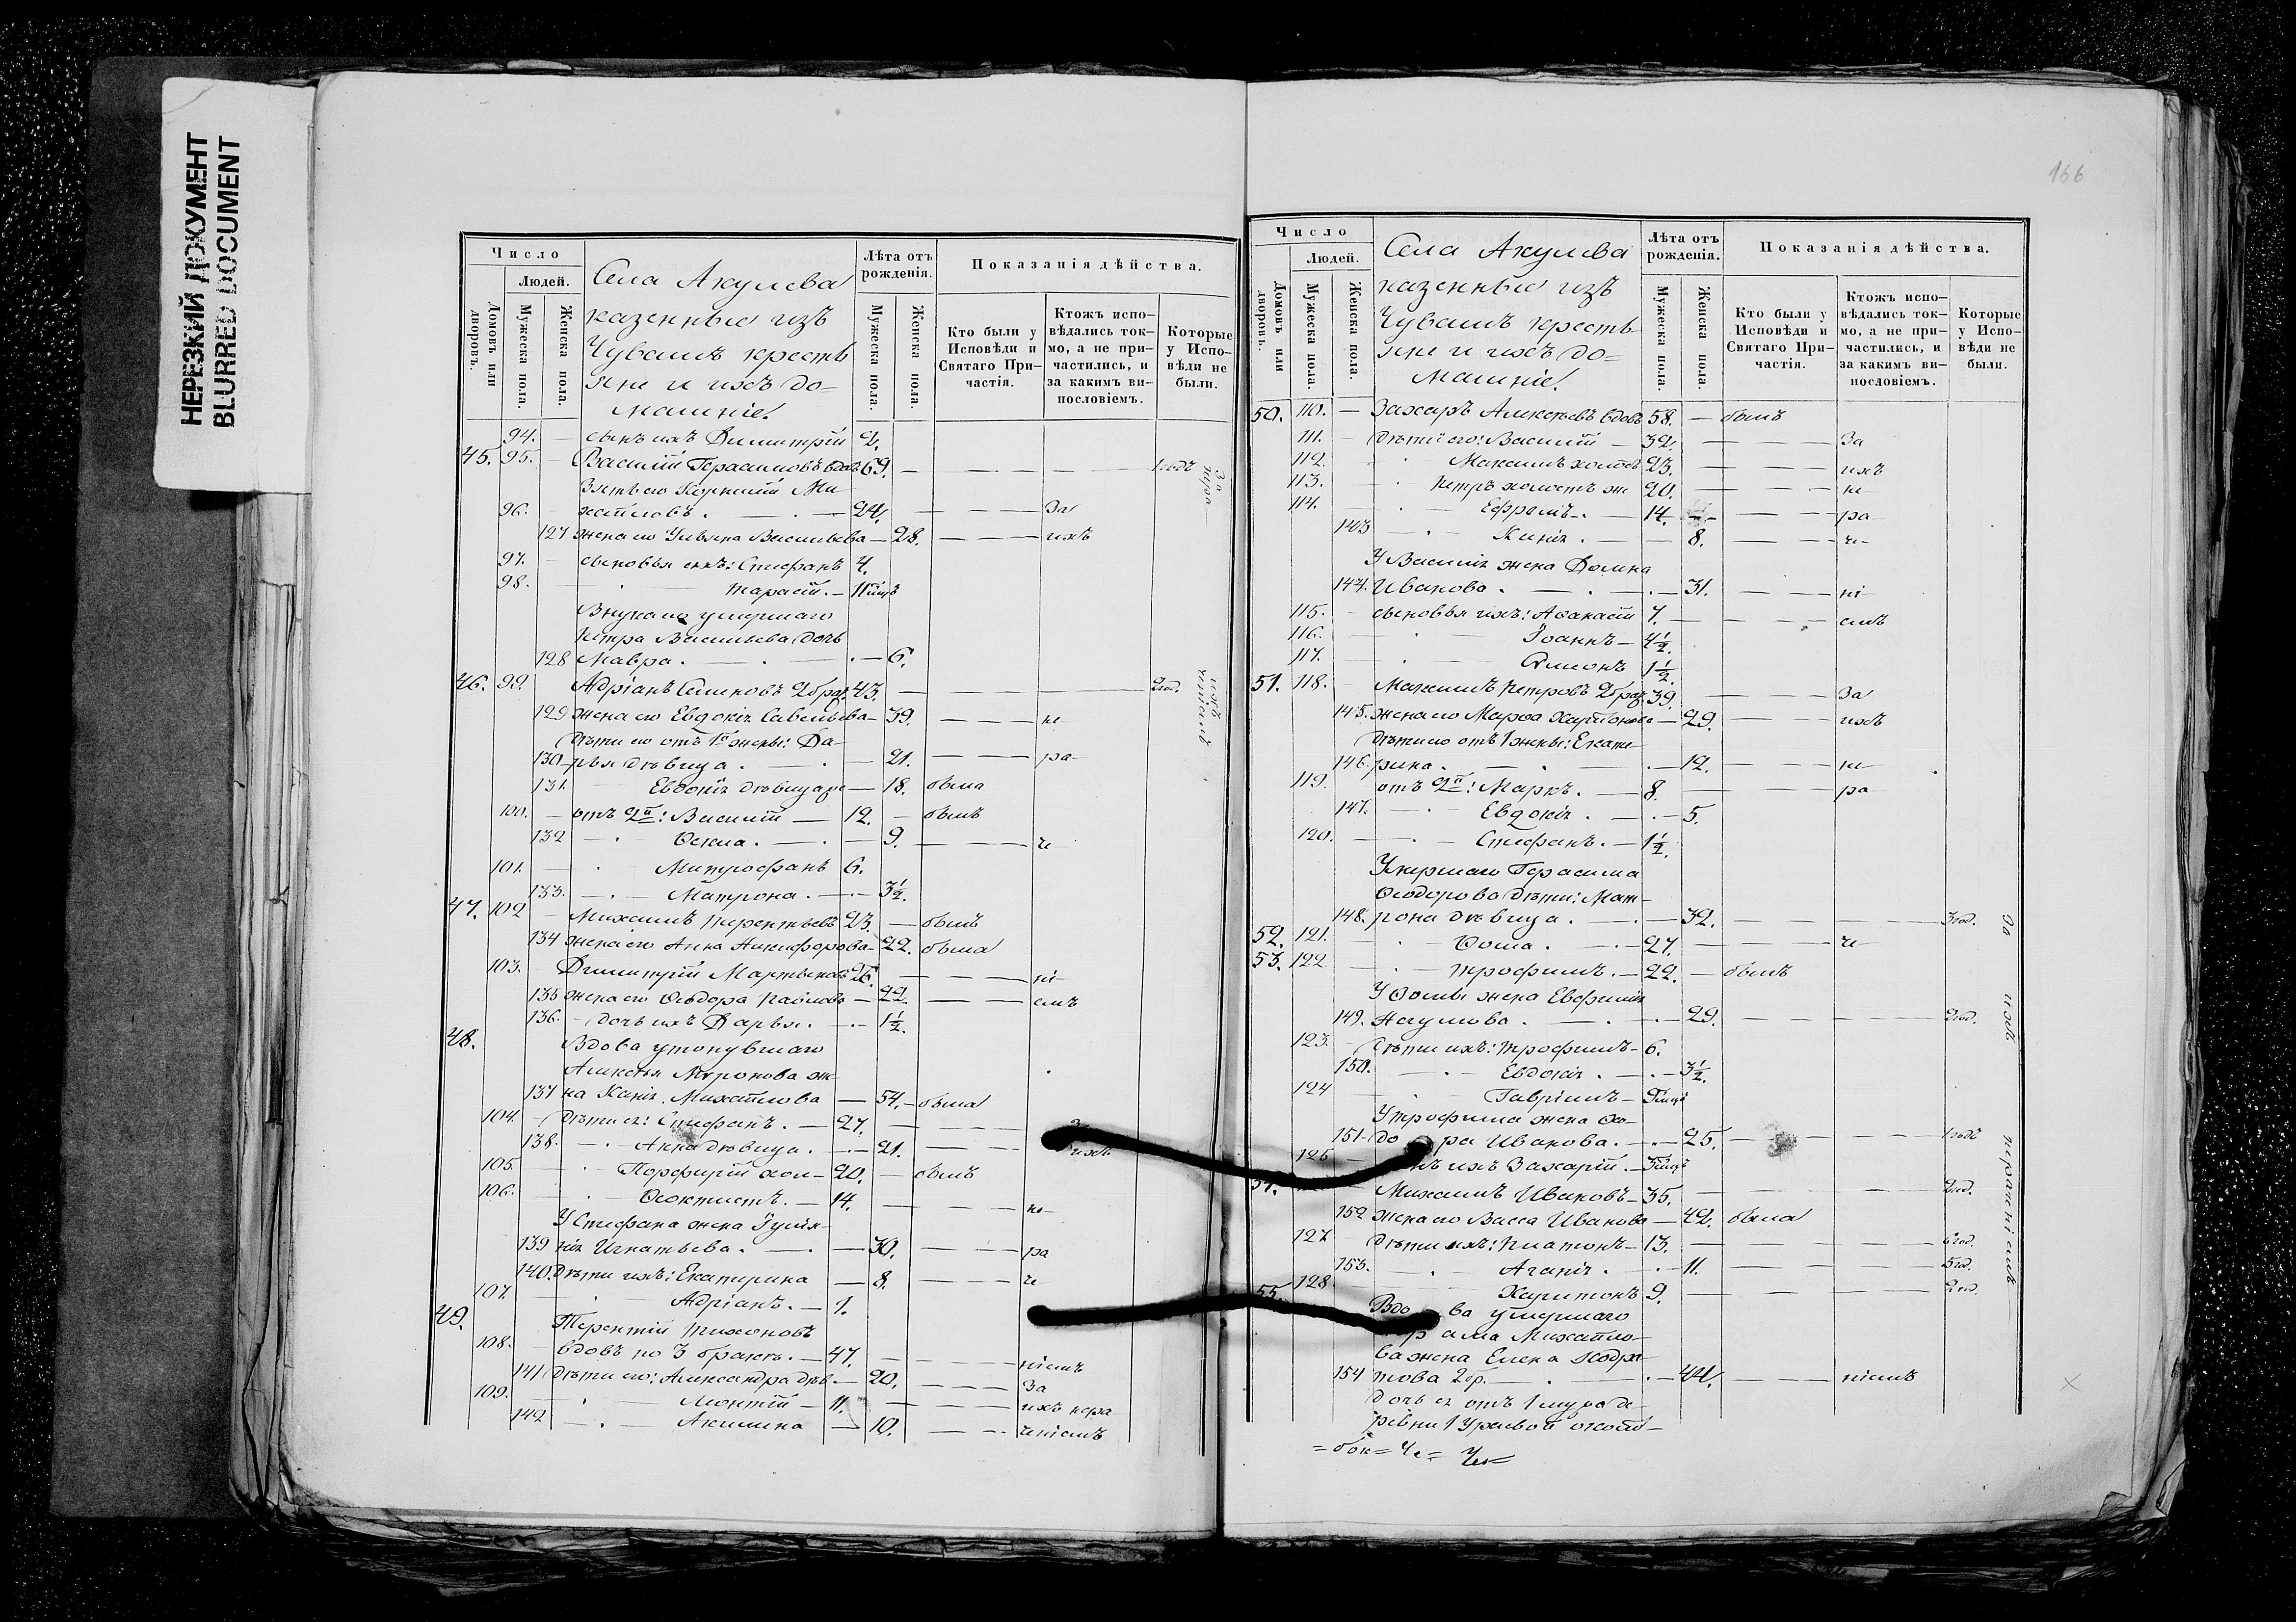 НЕРЕЗКИЙ ДОКУМЕНТ
BLURRED DOCUMENT
Число
Людей.
Домовъ или дворовъ.
Мужеска пола.
Женска пола.
Села Акулева
казенные изъ
Чувашъ кресть
яне и ихъ до=
машніе.
Лѣта отъ рожденія.
Мужеска пола.
Женска пола.
Показанія дѣйства.
Кто были у Исповѣди и Святаго При-частія.
Ктожъ испо-вѣдались ток-мо, а не при-частились, и за какимъ ви-нословіемъ.
Которые у Испо-вѣди не были.
94. — сынъ ихъ Димитрій 2.
45. 95. — Василій Герасимовъ вдовъ 69. — — — 1 годъ
Зять его Корнилій Ми-
96. — хайловъ. — 24. — — За
127 жена его Ульяна Васильева — 28. — — ихъ
97. — сыновья ихъ: Стефанъ 4.
98. — Тарасій. —
Внука его умершаго
Петра Васильева дочь
128 Мавра. — — 6.
46. 99. Адріанъ Симоновъ 2 брак. 43. — — — 2 год.
129 жена его Евдокія Савельева — 39. — — не
Дѣти его отъ 1й жены: Да-
130 рья дѣвица. — — 21. — — ра
131. Евдокія дѣвица — 18. была
100. — отъ 2й: Василій — 12. — былъ
132 — Фекла. — 9. — — че
101. — Митрофанъ 6.
133. — Матрона. — 3½.
47. 102 — Михаилъ Терентьевъ 23. — былъ
134 жена его Анна Никифорова — 22. была
103. — Димитрій Мартыновъ 26. — — ні
135 жена его Ѳеодора Павлова — 22. — — емъ
136. — дочь ихъ Дарья. — 1½.
48. Вдова утонувшаго
Алексѣя Миронова же-
137 на Ксенія Михайлова — 54. — была
104. — Дѣти ея: Стефанъ. — 27. —
138. — Анна дѣвица. — 21. — — ихъ
105. — Порфирій хол — 20. — былъ
106. — Ѳеоктистъ. — 14. — — не
У Стефана жена Іуліа-
139 нія Игнатьева. — — 30. — — ра
140. Дѣти ихъ: Екатерина — 8. — — че
107. — Адріанъ. — 1.
49. Терентій Тихоновъ
108. вдовъ по 3 бракѣ. — 47. — — ніемъ
141 Дѣти его: Александра дѣв. — 20. — — За
109. — Леонтій — 11. — — ихъ нера
142 — Акилина — 10. — — ченіемъ
За нера
ихъ ченіемъ
166
Число
Людей.
Домовъ или дворовъ.
Мужеска пола.
Женска пола.
Села Акулева
казенные изъ
Чувашъ кресть
яне и ихъ до=
машніе.
Лѣта отъ рожденія.
Мужеска пола.
Женска пола.
Показанія дѣйства.
Кто были у Исповѣди и Святаго При-частія.
Ктожъ испо-вѣдались ток-мо, а не при-частились, и за какимъ ви-нословіемъ.
Которые у Испо-вѣди не были.
50. 110. — Захаръ Алексѣевъ вдовъ 58. — былъ
111. — Дѣти его: Василій — 32. — — За
112. Максимъ холостъ 23. — — ихъ
113. Петръ холостъ же 20. — — не
114. Ефремъ. — 14. — — ра
143 Ксенія. — — 8. — — че
У Василія жена Домна
144. Иванова. — — 31. — — ні
115. — сыновья ихъ: Аѳанасій 7. — — емъ
116. Іоаннъ — 4½.
117. Симонъ 1½.
51. 118. — Максимъ Петровъ 2 брак. 39. — — За
145. жена его Марѳа Харитонова — 29. — — ихъ
Дѣти его отъ 1 жены: Екате-
146. рина. — — 12. — — не
119. отъ 2й: Маркъ. — 8. — — ра
147. Евдокія. — 5.
120. — Стефанъ. — 1½.
Умершаго Герасима
Ѳеодорова дѣти: Мат-
148. рона дѣвица. — — 32. — — — 3 год.
52. 121. — Ѳома. — 27. — — че
53. 122 — Трофимъ. — 22. — былъ
У Ѳомы жена Евфимія
149. Наумова. — — 29. — — — 2 год.
123. — Дѣти ихъ: Трофимъ — 6.
150. — Евдокія. — 3½.
124 — Гавріилъ —
У Трофима жена Ѳео-
151. дора Иванова. — 25. — — — 1 годъ
125 — сынъ ихъ Захарій. —
54. Михаилъ Ивановъ — 35. — — — 2 год.
152 жена его Васса Иванова — 42. была
127 — Дѣти ихъ: Платонъ — 13. — — — 6 год.
153. Агапія. — 11. — — — 5 год.
128 Харитонъ 9. — — — 2 год.
55. Вдова умершаго
Михайло-
ва жена Елена Кодра-
154 това 2 бр. — — 44. — — ніемъ
дочь ея отъ 1 мужа де-
ревни
За ихъ нераченіемъ